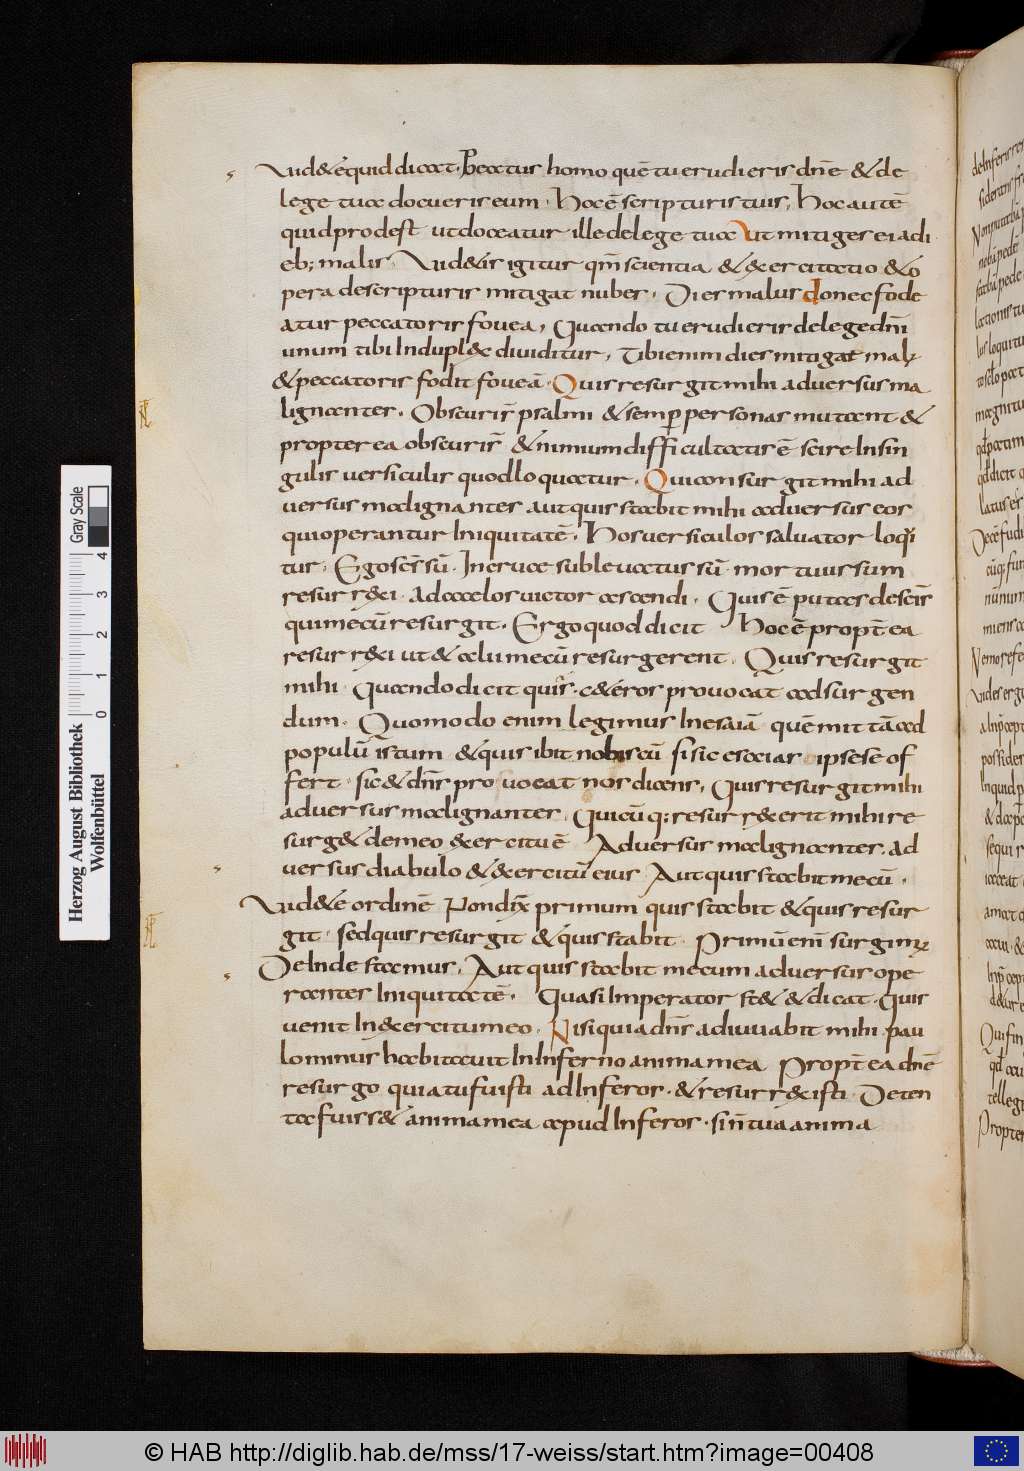 Uid&equid dicat. Beatus homo quē tu erudieris dnē & de
lege tuae docueris eum. Hoc ē scripturis tuis, hoc autē
quid prodest ut doceatur ille de lege tua Ut mitiges ei a di
eb; malis. Uid&is igitur qm̄ scientia & exercitatio & o
pera de scripturis mitigat nuber. Dies malus donec fode
atur peccatoris fovea, Quando tu erudieris de lege dn̄i
unum tibi In dupl&c dividitur, Tibi enim dies mitigat mal;
& peccatoris fodit foveā. Quis resurgit mihi adversus ma
lignantes. Obscuri s̄ psalmi & semp personas mutant &
propterea obscuri s̄ & nimium difficultatis ē scire In sin
gulis versiculis quod loquatur. Qui consurgit mihi ad
versus malignantes aut quis stabit mihi adversus eos
qui operantur Iniquitatē. Hos versiculos salvator loqui
tur. Ego scs̄ sū. In cruce sublevatus sū. mortuus sum
resurr&xi. ad caelos victor ascendi. Quis ē putas de scīs
qui mecū resurgit. Ergo quod dicit Hoc ē propt̄ea
resurr&xi ut & alii mecū resurgerent. Quis resurgit
mihi. Quando dicit quis. c&eros provocat ad surgen
dum. Quomodo enim legimus In esaiā quē mittā ad
populū istum & quis ibit nobiscū si sic esaias ipse se of
fert. sic & dns̄ provocat nos dicens, Quis resurgit mihi
adversus malignantes. Quicūq; resurr&xerit mihi re
surg& de meo &xercitu ē Adversus malignantes. ad
versus diabulo & &xercitū eius Aut quis stabit mecū.
Uid&e ordinē Non dix̄ primum quis stabit & quis resur
git. sed quis resurgit & quis stabit. Primū enī surgim;
Deinde stamus, Aut quis stabit mecum adversus ope
rantes Iniquitatē. Quasi Imperator st& & dicat. Quis
venit In &xercitu meo. Nisi quia dns̄ adiuvabit mihi. pau
lo minus habitavit In Inferno anima mea Propt̄ea dnē
resurgo quia tu fuisti ad Inferos. & resurr&xisti. Deten
ta fuiss& anima mea apud Inferos. si n̄ tua anima
Herzog August Bibliothek
Wolfenbüttel
Gray Scale
0 1 2 3 4
© HAB http://diglib.hab.de/mss/17-weiss/start.htm?image=00408